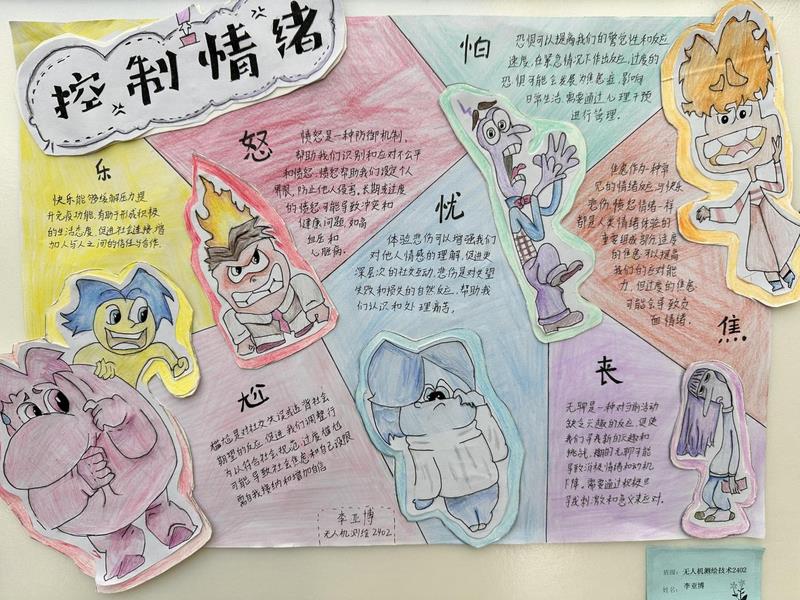 控制情绪
乐
快乐能够缓解压力,提
升免疫功能,有助于形成积极
的生活态度,促进社会连接,增
加人与人之间的信任与合作.
怒
愤怒是一种防御机制,
帮助我们识别和应对不公平
和愤怒.愤怒帮助我们设定个人
界限,防止他人侵害.长期来过度
的愤怒可能导致冲突和
健康问题,如高
血压和
心脏病.
怕
恐惧可以提高我们的警觉性和反应
速度,在紧急情况下作出反应,过度的
恐惧可能会发展为焦虑症,影响
日常生活,需要通过心理干预
进行管理.
忧
体验悲伤可以增强我们
对他人情感的理解,促进更
深层次的社交互动.悲伤是对失望
失败和损失的自然反应,帮助我
们认识和处理痛苦.
焦
焦虑作为一种常
见的情绪反应,与快乐
悲伤,愤怒情绪一样
都是人类情绪体验的
重要组成部分适度
的焦虑可以提高
我们的应对能
力,但过度的焦虑
可能会导致负
面情绪.
尬
尴尬是对社交失误或违背社会
期望的反应,促进我们调整行
为以符合社会规范,过度尴尬
可能导致社会焦虑和自己设限
需自我接纳和增加自信
丧
无聊是一种对当前活动
缺乏兴趣的反应,促使
我们寻找新的兴趣和
挑战,长期无聊可能
导致消极情绪和动机
下降,需要通过积极
寻找刺激和意义来应对.
李亚博
无人机测绘2402
班级:无人机测绘技术2402
姓名:李亚博